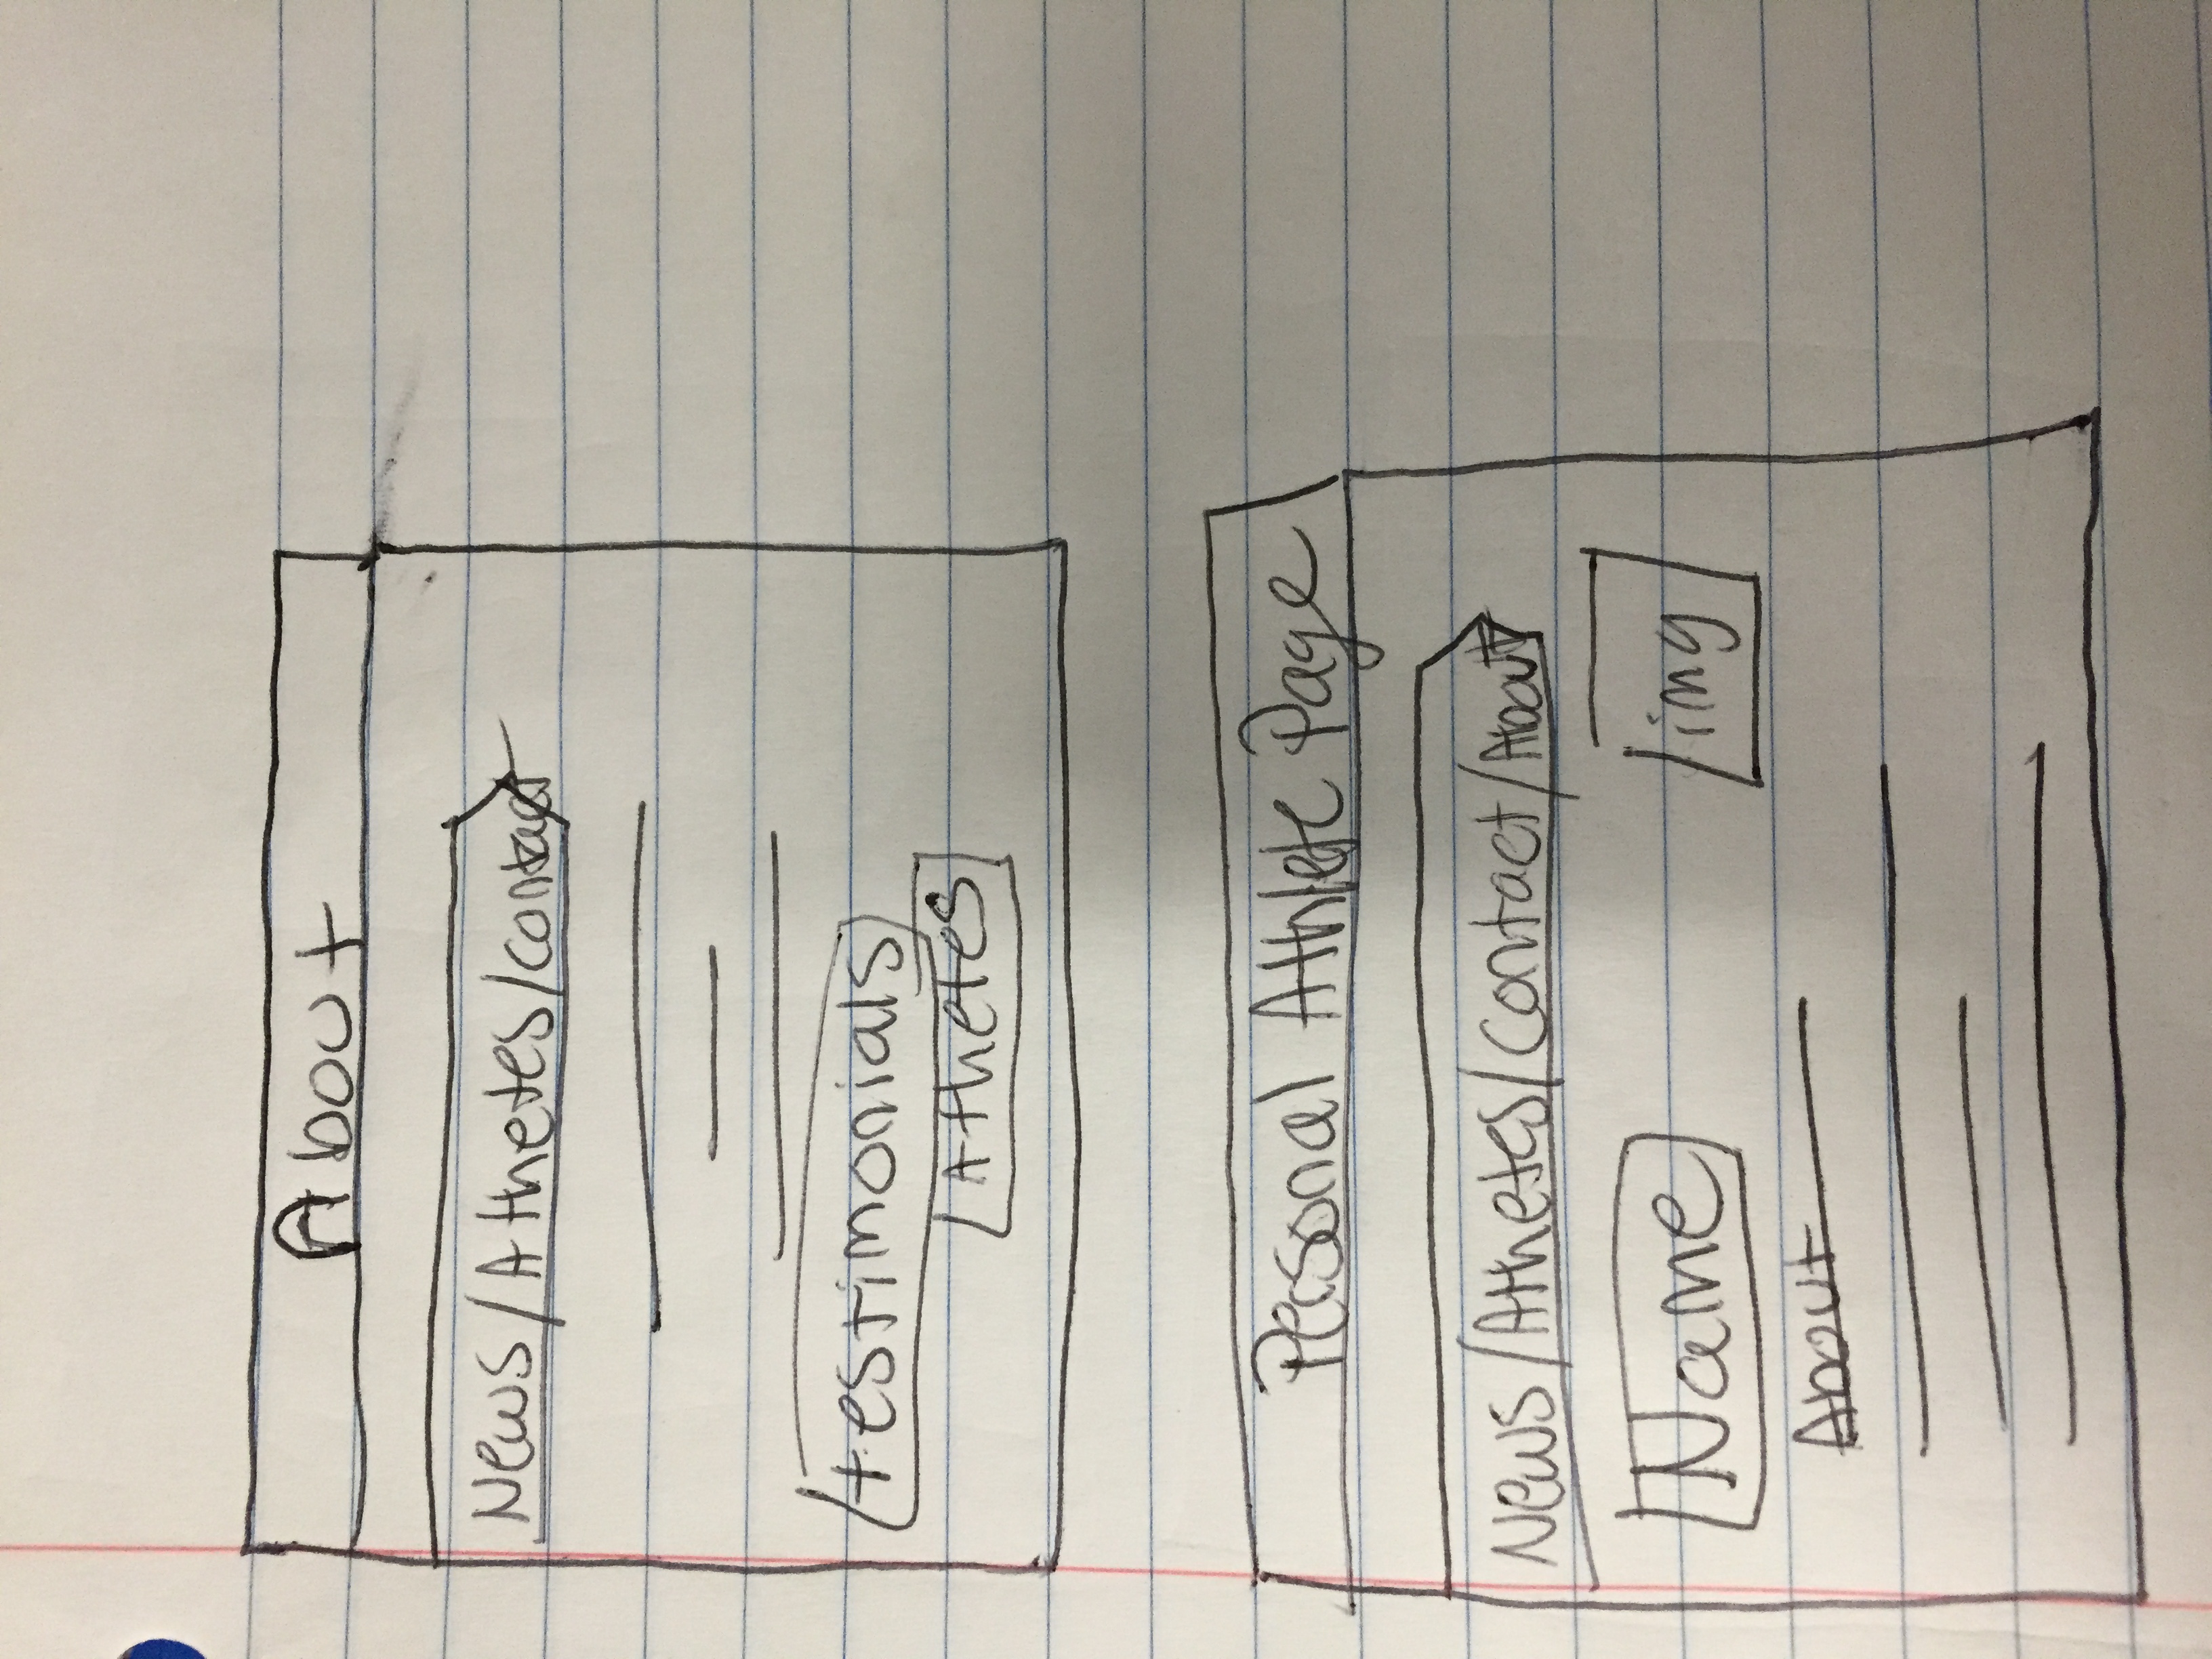 About
News/Athetes/Contact
testimonials
Athetes
Personal Athlete Page
News/Athetes/Contact/About
Name
img
About